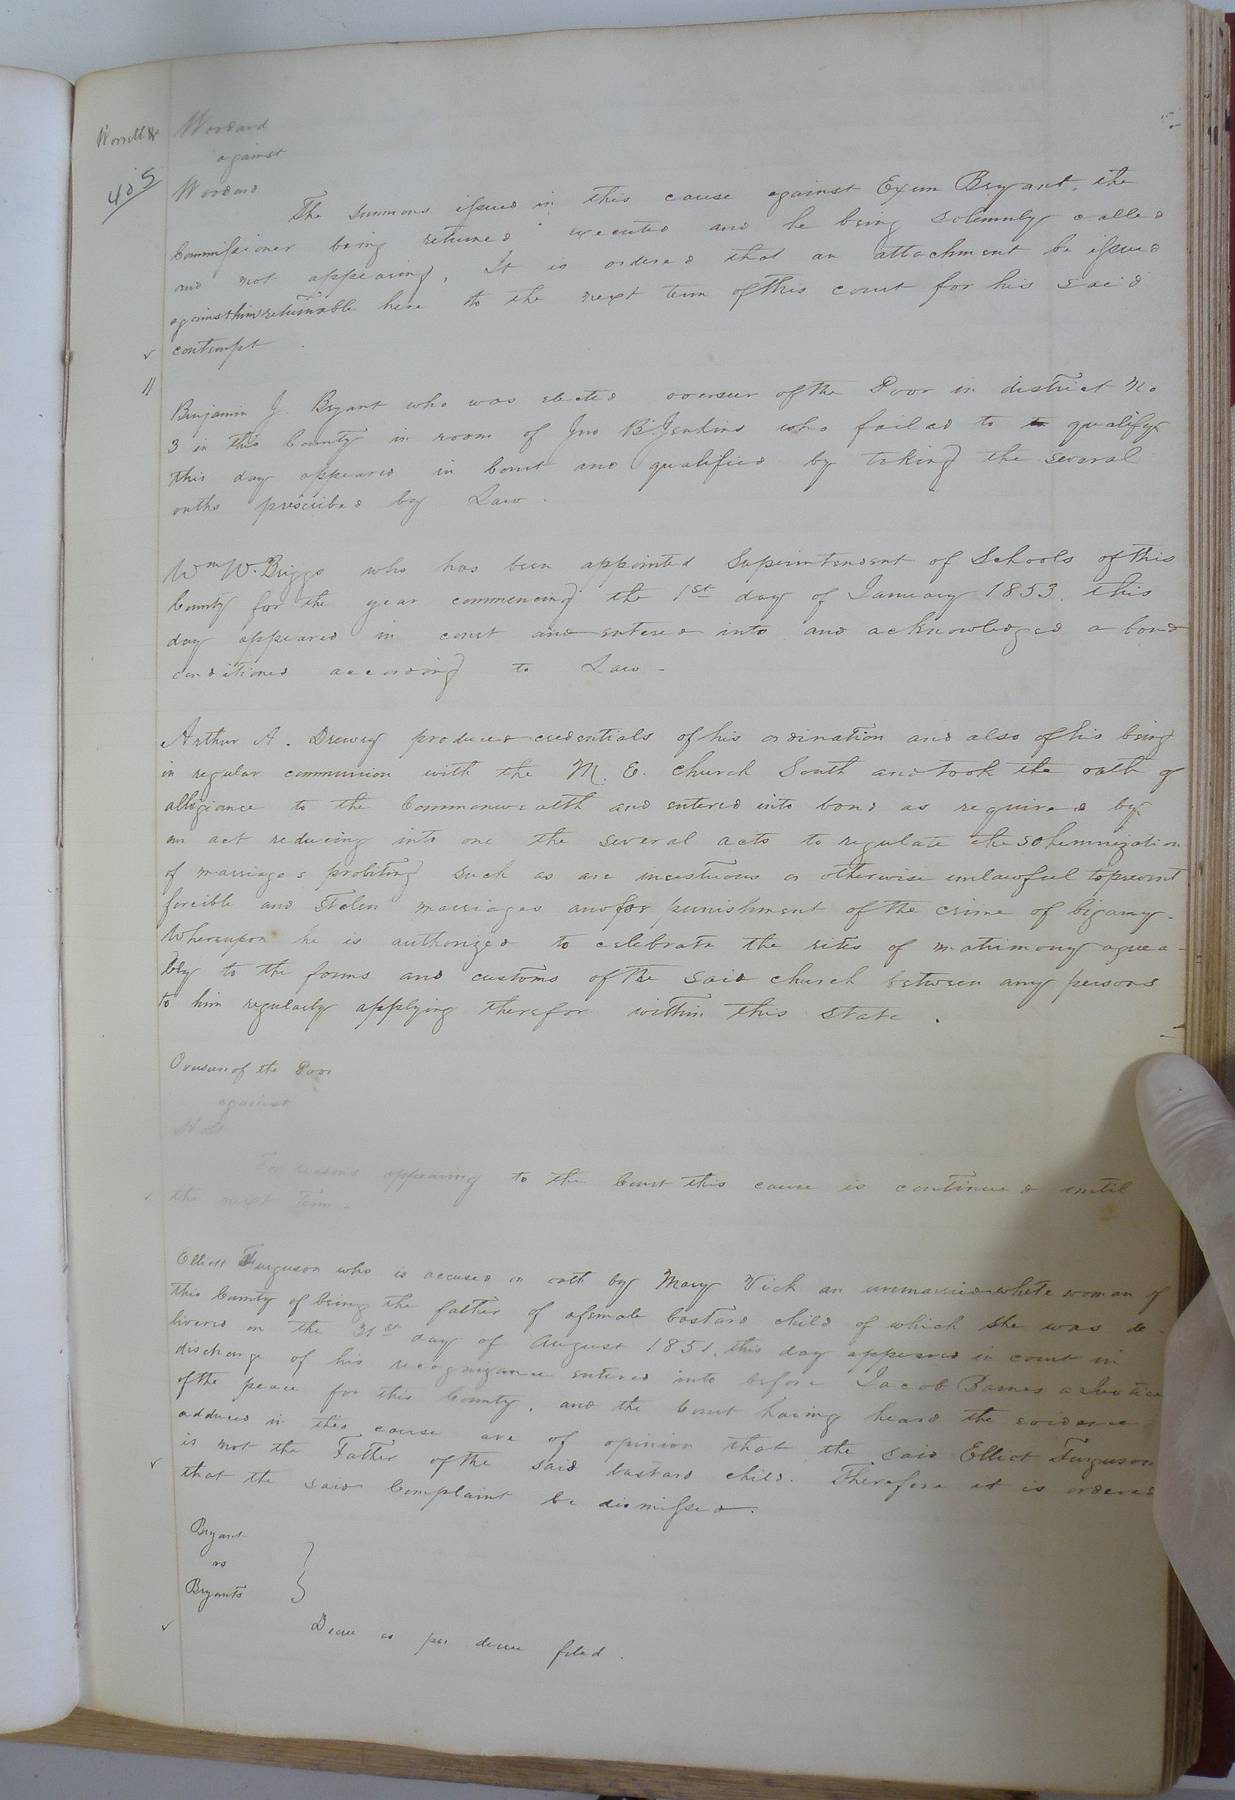 Worrell &c
405
Woodard
against
Woodard
The summons issued in this cause against Exum Bryant, the
Commissioner being returned executed and he being solemnly called
and not appearing, It is ordered that an attachment be issued
against him returnable here to the next term of this court for his said
contempt
Benjamin J. Bryant who was elected overseer of the Poor in district No
3 in this County in room of Jno B. Jenkins who failed to to qualify
this day appeared in Court and qualified by taking the several
oaths prescribed by Law.
Wm W. Briggs who has been appointed Superintendent of Schools of this
County for the year commencing the 1st day of January 1853. this
day appeared in court and entered into and acknowledged a bond
conditioned according to Law -
Arthur A. Drewry produced credentials of his ordination and also of his being
in regular communion with the M. E. church South and took the oath of
allegiance to the Commonwealth and entered into bond as required by
an act reducing into one the several acts to regulate the solhemnization
of marriages probiting such as are incestuous or otherwise unlawful to prevent
forcible and Stolen marriages and for punishment of the crime of bigamy.
Whereupon he is authorized to celebrate the rites of matrimony agreea-
bly to the forms and customs of the said church between any persons
to him regularly applying therefor within this state.
Overseers of the Poor
against
For reasons appearing to the Court this cause is continued until
the next term.
Elliott Furguson who is accused on oath by Mary Vick an unmarried white woman of
this County of being the father of a female bastard child of which she was de-
livered on the 31st day of August 1851, this day appeared in court in
discharge of his recognizance entered into before Jacob Barnes a Justice
of the peace for this County, and the Court having heard the evidence
adduced in this cause are of opinion that the said Elliot Furguson
is not the Father of the said bastard child. Therefore it is ordered
that the said Complaint be dismissed.
Bryant
vs
Bryants
Decree as per decree filed.